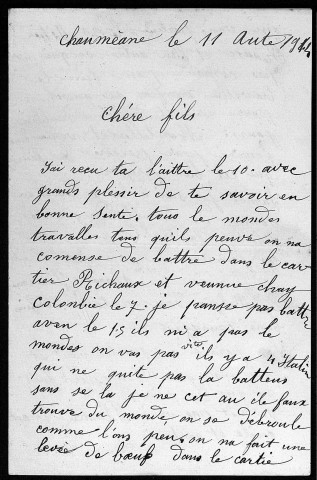 chaumèane le 11 Aute 1914
chére fils
J'ai recu ta laittre le 10. avec
grands plessir de te savoir en
bonne sente. tous le mondes
travalles tous quils peuve on na
comense de battre dans le car
tier Richaux et veunue chay
colonbie le 7. je pansse pas battre
aven le 15 ils ni a pas le
mondes on vas pas vite ils y a 4 Italien
qui ne quite pas la batteus
sans se la je ne cet au ile faux
trouve du monde, on se debroule
comme l'ons peus, on na fait une
levée de bœuf dans le cartie